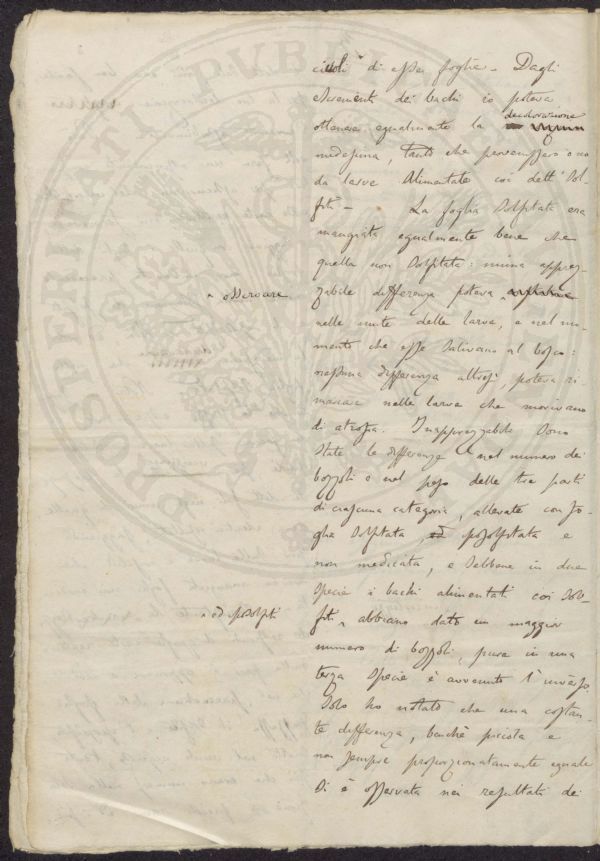 cicoli di esse foglie. Dagli
escrementi dei bachi io poteva
decolorazione
ottenere egualmente la
medesima, tanto che provenissero o no
da larve alimentate coi detti Sol-
fiti — La foglia Solfitata era
mangiata egualmente bene che
quella non Solfitata: niuna apprez-
^ osservare
zabile differenza poteva ^
nelle mute delle larve, e nel mo-
mento che esse Salivano al bosco:
nessuna differenza altresì, poteva ri-
marcare nelle larve che morivano
di atrofia. Inapprezzabili Sono
State le differenze nel numero dei
bozzoli e nel peso delle tre parti
di ciascuna categoria, allevate con fo-
glia Solfitata, ed posolfitata e
non medicata, e Sebbene in due
Specie i bachi alimentati coi Sol-
^ ed iposolfiti
fiti ^ abbiano dato un maggior
numero di bozzoli, pure in una
terza Specie è avvenuto l'inverso.
Solo ho notato che una costan-
te differenza, benchè piccola e
non sempre proporzionatamente eguale
Si è osservata nei resultati dei